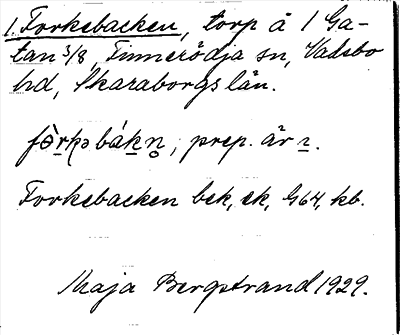 1. Forkebacken, torp å 1 Ga-
tan 3/8, Finnerödja sn, Vadsbo
hd, Skaraborgs län.
fòrkəbákn̥, prep. är ı.
Forkebacken bek, ek, G64, kb.
Maja Bergstrand 1929.